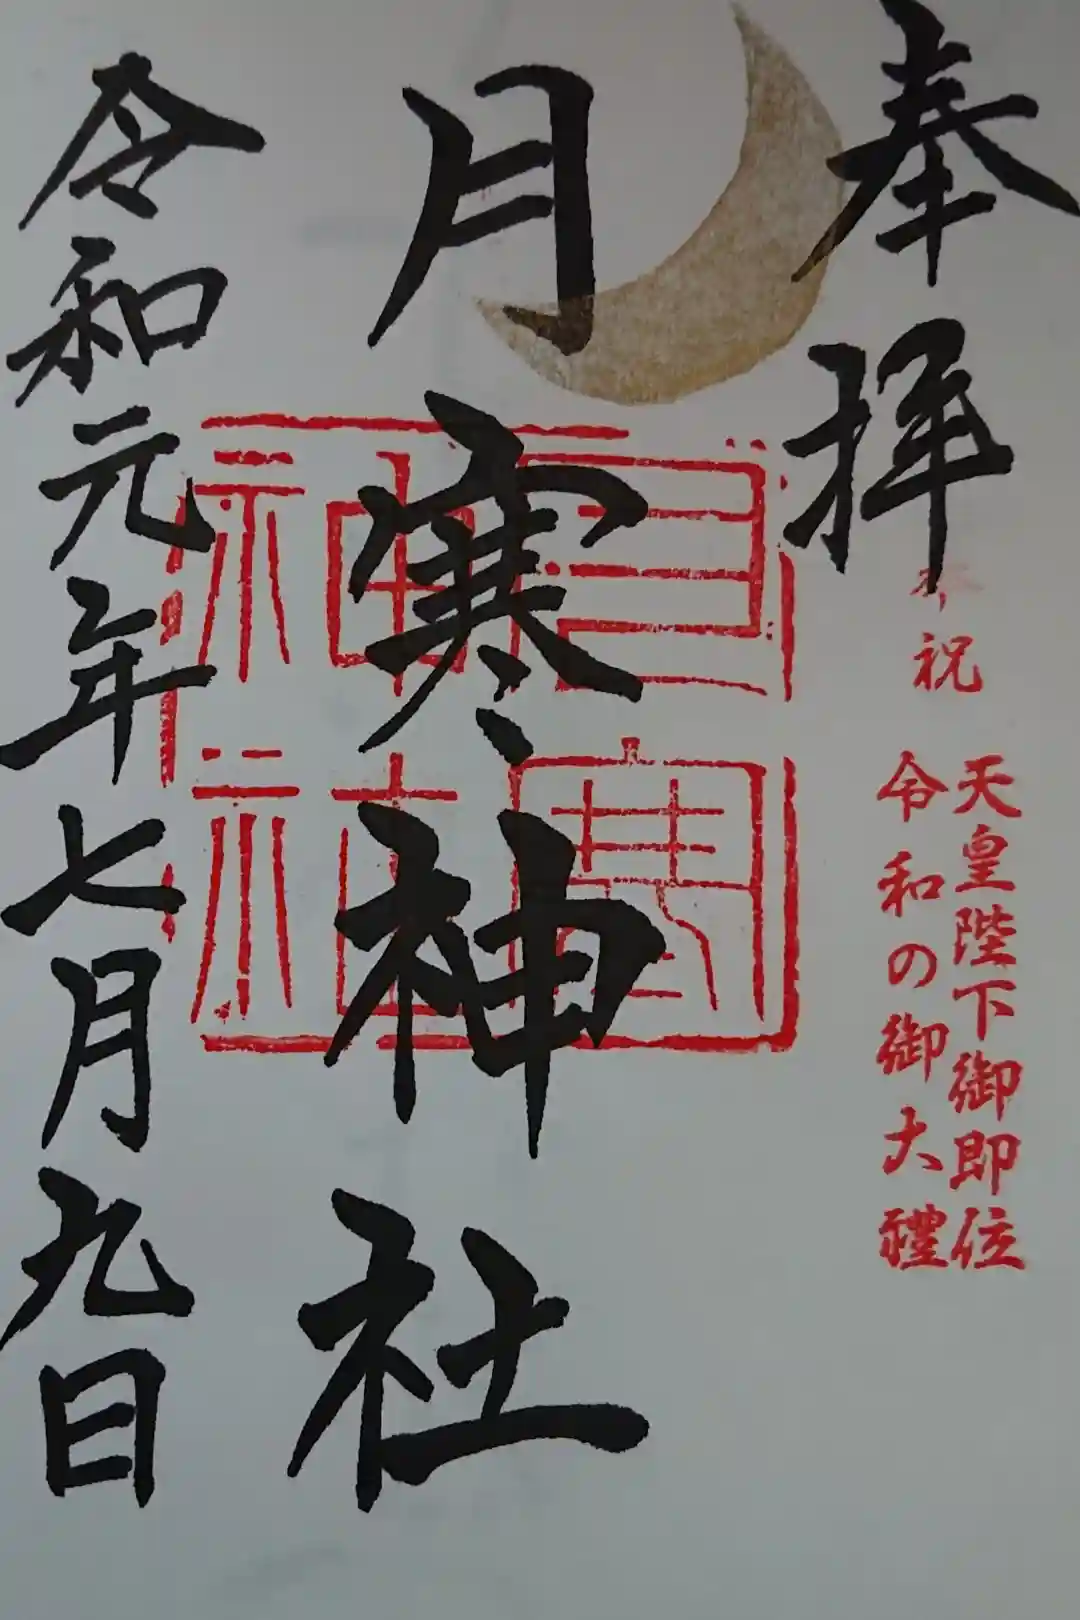 奉拝
奉祝
天皇陛下御即位
令和の御大禮
月寒神社
月寒神社
令和元年七月九日